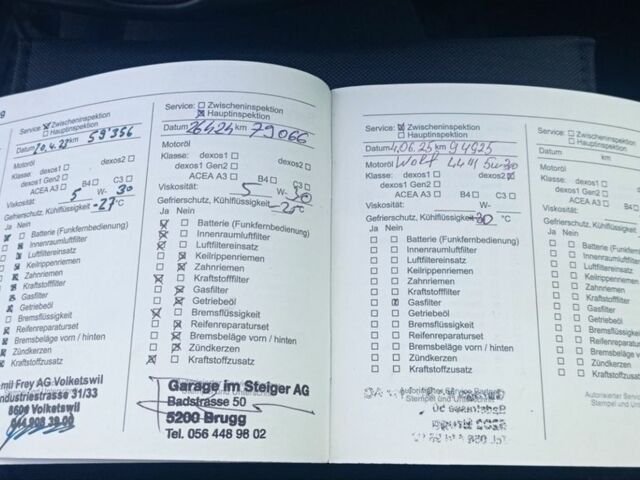 9
Service: Zwischeninspektion
Hauptinspektion
Datum 20.4.23 km 59'356
Motoröl
Klasse: dexos1 dexos2
dexos1 Gen2
ACEA A3 B4 C3
Viskosität: 5 W- 30
Gefrierschutz, Kühlflüssigkeit -27°C
Ja Nein
Batterie (Funkfernbedienung)
Innenraumluftfilter
Luftfiltereinsatz
Keilrippenriemen
Zahnriemen
Kraftstofffilter
Gasfilter
Getriebeöl
Bremsflüssigkeit
Reifenreparaturset
Bremsbeläge vorn / hinten
Zündkerzen
Kraftstoffzusatz
mil Frey AG Volketswil
ndustriestrasse 31/33
8604 Volketswil
Service: Zwischeninspektion
Hauptinspektion
Datum 26.4.24 km 79066
Motoröl
Klasse: dexos1 dexos2
dexos1 Gen2
ACEA A3 B4 C3
Viskosität: 5 W- 30
Gefrierschutz, Kühlflüssigkeit °C
Ja Nein
Batterie (Funkfernbedienung)
Innenraumluftfilter
Luftfiltereinsatz
Keilrippenriemen
Zahnriemen
Kraftstofffilter
Gasfilter
Getriebeöl
Bremsflüssigkeit
Reifenreparaturset
Bremsbeläge vorn / hinten
Zündkerzen
Kraftstoffzusatz
Garage im Steiger AG
Badstrasse 50
5200 Brugg
Tel. 056 448 98 02
Service: Zwischeninspektion
Hauptinspektion
Datum 4.06.25 km 94925
Motoröl Wolf 5W30
Klasse: dexos1 dexos2
dexos1 Gen2
ACEA A3 B4 C3
Viskosität: W-
Gefrierschutz, Kühlflüssigkeit -30 °C
Ja Nein
Batterie (Funkfernbedienung)
Innenraumluftfilter
Luftfiltereinsatz
Keilrippenriemen
Zahnriemen
Kraftstofffilter
Gasfilter
Getriebeöl
Bremsflüssigkeit
Reifenreparaturset
Bremsbeläge vorn / hinten
Zündkerzen
Kraftstoffzusatz
Autorisierter Service Partner
Stempel und
Service:
Datum km
Motoröl
Klasse: dexos1
dexos1 Gen2
ACEA A3
Viskosität:
Gefrierschutz, Kühlflüssigkeit
Ja Nein
Batterie (Funkfernbedienung)
Innenraumluftfilter
Luftfiltereinsatz
Keilrippenriemen
Zahnriemen
Kraftstofffilter
Gasfilter
Getriebeöl
Bremsflüssigkeit
Reifenreparaturset
Bremsbeläge vorn / hinten
Zündkerzen
Kraftstoffzusatz
Autorisierter Service
Stempel und